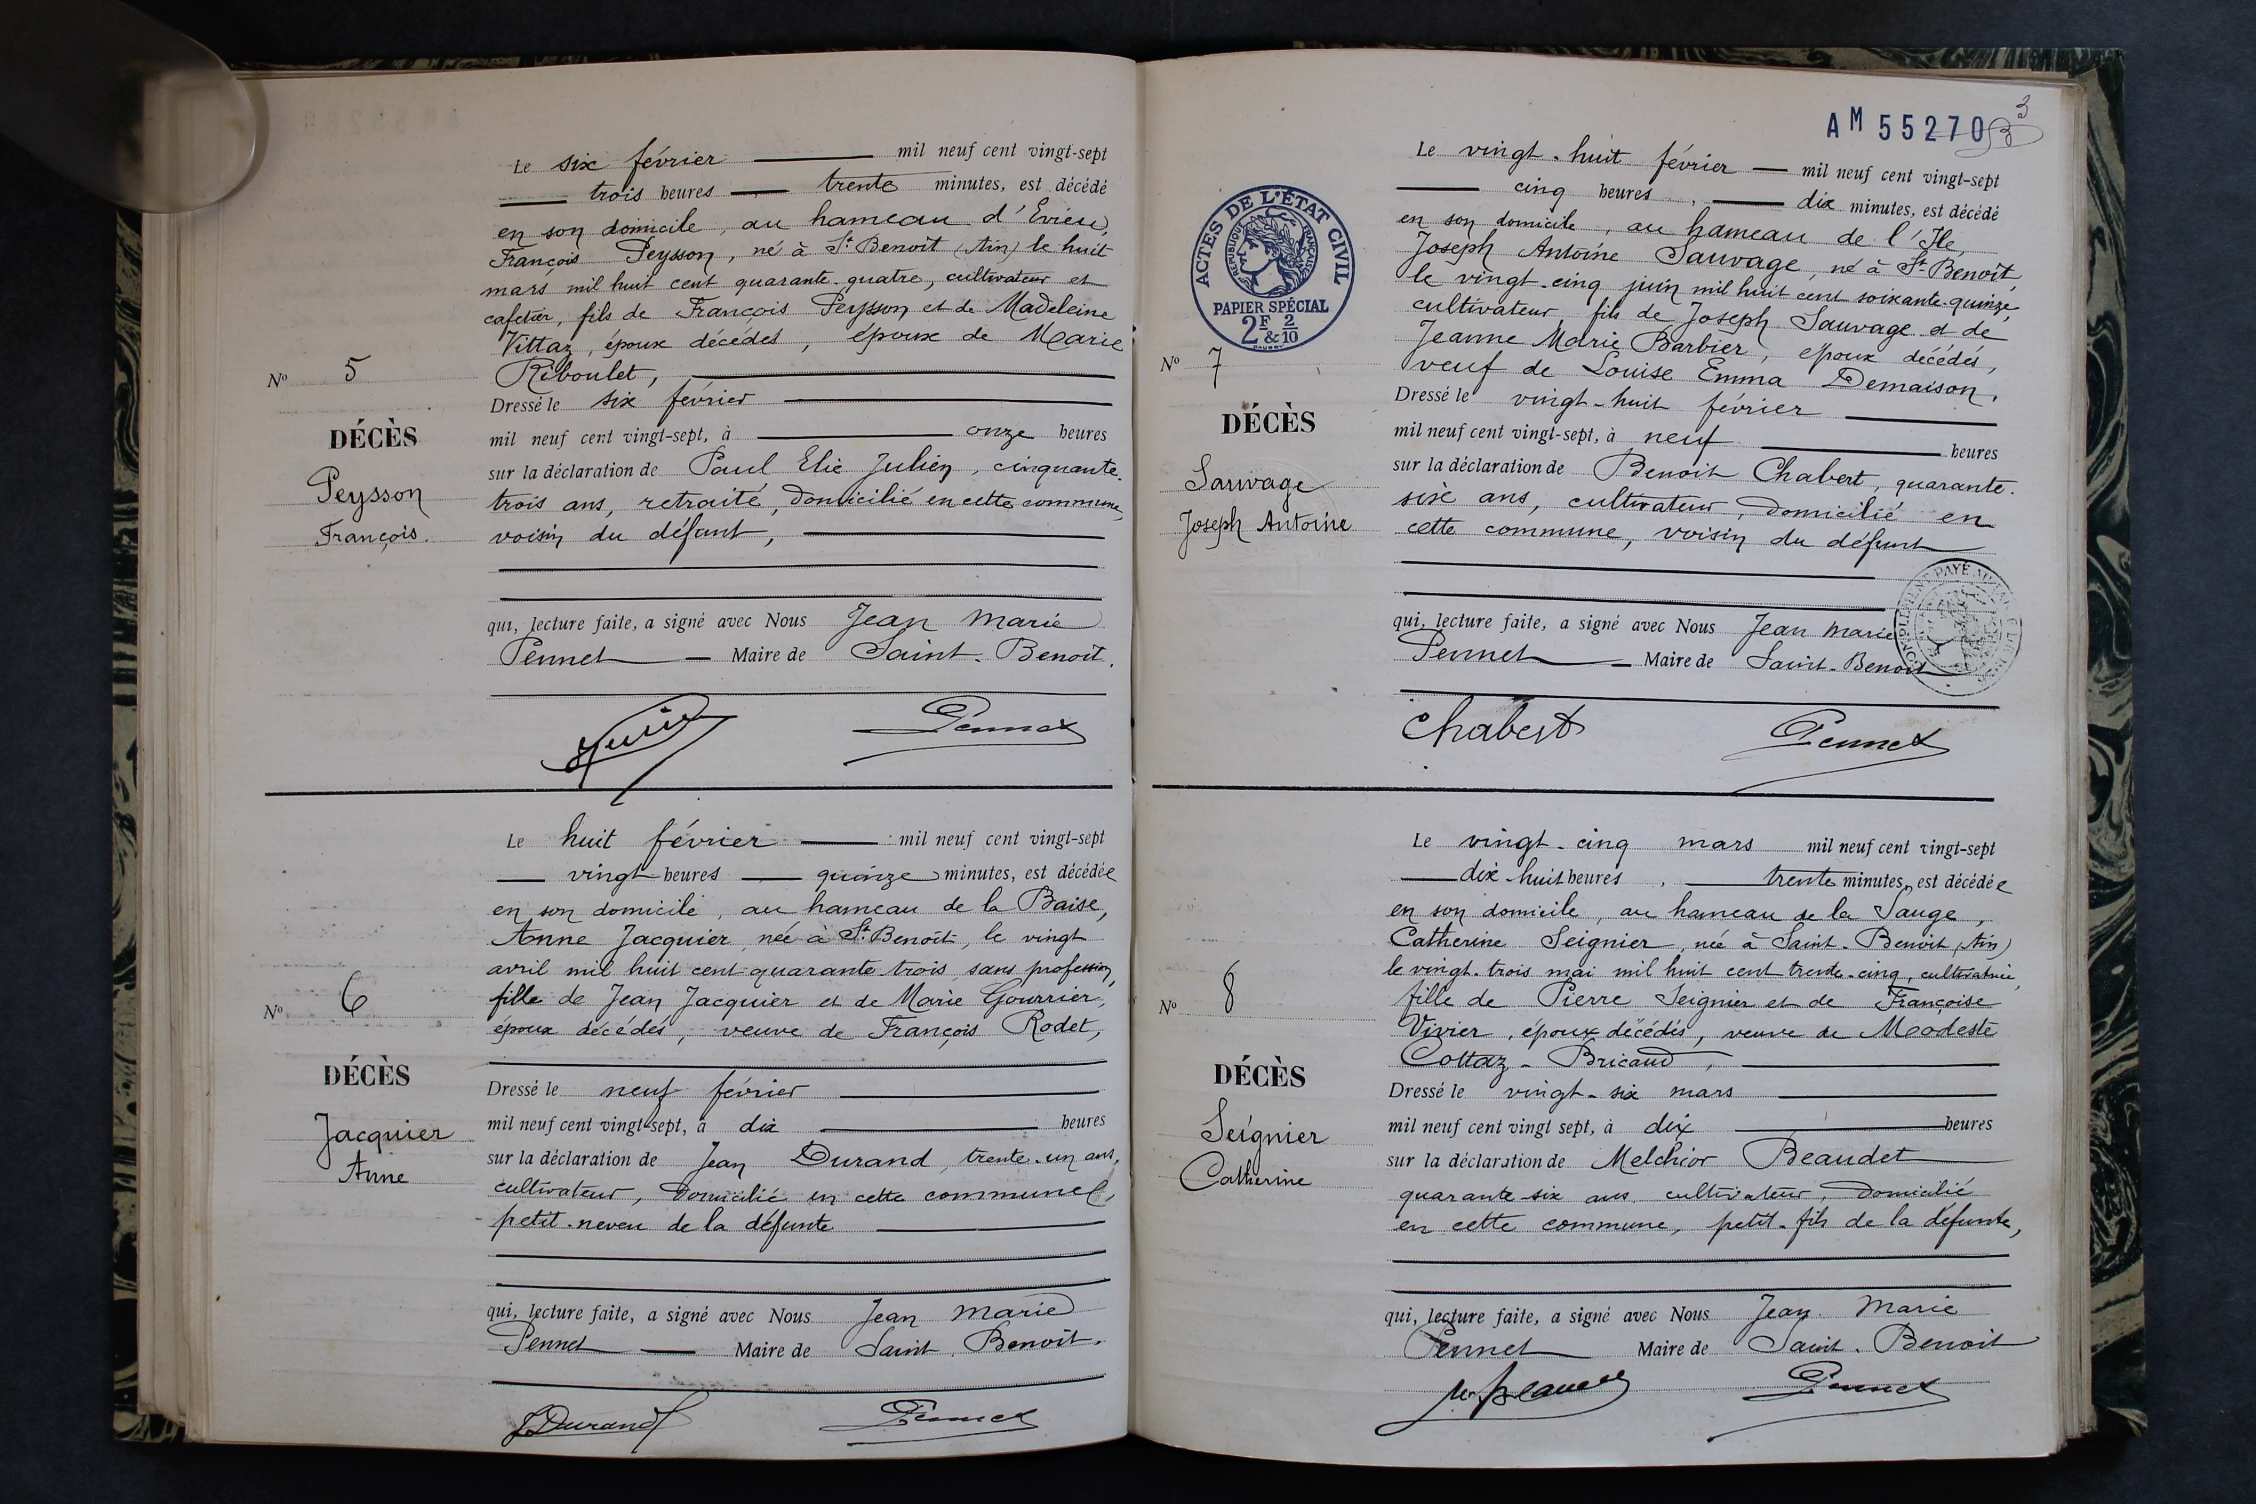 Le six février mil neuf cent vingt-sept
trois heures trente minutes, est décédé
en son domicile, au hameau d'Evieu,
François Peysson, né à St Benoit (Ain) le huit
mars mil huit cent quarante-quatre, cultivateur et
cafetier, fils de François Peysson et de Madeleine
Vittaz, époux décédés, époux de Marie
Riboulet,
Dressé le six février
mil neuf cent vingt-sept, à onze heures
sur la déclaration de Paul Elie Julien, cinquante-
trois ans, retraité, domicilié en cette commune,
voisin du défunt,
qui, lecture faite, a signé avec Nous Jean Marie
Pennet Maire de Saint-Benoit.
Pennet
No 5
DÉCÈS
Peysson
François.
Le huit février mil neuf cent vingt-sept
vingt heures quinze minutes, est décédée
en son domicile, au hameau de la Baise,
Anne Jacquier née à St Benoit, le vingt
avril mil huit cent quarante trois sans profession,
fille de Jean Jacquier et de Marie Gourrier,
époux décédés, veuve de François Rodet,
Dressé le neuf février
mil neuf cent vingt-sept, à dix heures
sur la déclaration de Jean Durand, trente-un ans,
cultivateur, domicilié en cette commune,
petit-neveu de la défunte
qui, lecture faite, a signé avec Nous Jean Marie
Pennet Maire de Saint-Benoit.
J Durand Pennet
No 6
DÉCÈS
Jacquier
Anne
AM 55270
3
ACTES DE L'ÉTAT CIVIL
RÉPUBLIQUE FRANÇAISE
PAPIER SPÉCIAL
2F & 2/10
Le vingt-huit février mil neuf cent vingt-sept
cinq heures, dix minutes, est décédé
en son domicile, au hameau de l'Ile,
Joseph Antoine Sauvage, né à St Benoit,
le vingt-cinq juin mil huit cent soixante-quinze,
cultivateur, fils de Joseph Sauvage et de
Jeanne Marie Barbier, époux décédés,
veuf de Louise Emma Demaison.
Dressé le vingt-huit février
mil neuf cent vingt-sept, à neuf heures
sur la déclaration de Benoit Chabert, quarante-
six ans, cultivateur, domicilié en
cette commune, voisin du défunt
qui, lecture faite, a signé avec Nous Jean Marie
Pennet Maire de Saint-Benoit
Chabert Pennet
No 7
DÉCÈS
Sauvage
Joseph Antoine
Le vingt-cinq mars mil neuf cent vingt-sept
dix-huit heures, trente minutes, est décédée
en son domicile, au hameau de la Sauge,
Catherine Seignier, née à Saint-Benoit (Ain)
le vingt-trois mai mil huit cent trente-cinq, cultivatrice,
fille de Pierre Seignier et de Françoise
Vivier, époux décédés, veuve de Modeste
Cottaz-Bricaud,
Dressé le vingt-six mars
mil neuf cent vingt sept, à dix heures
sur la déclaration de Melchior Beaudet
quarante-six ans cultivateur, domicilié
en cette commune, petit-fils de la défunte,
qui, lecture faite, a signé avec Nous Jean Marie
Pennet Maire de Saint-Benoit
Pennet
No 8
DÉCÈS
Seignier
Catherine